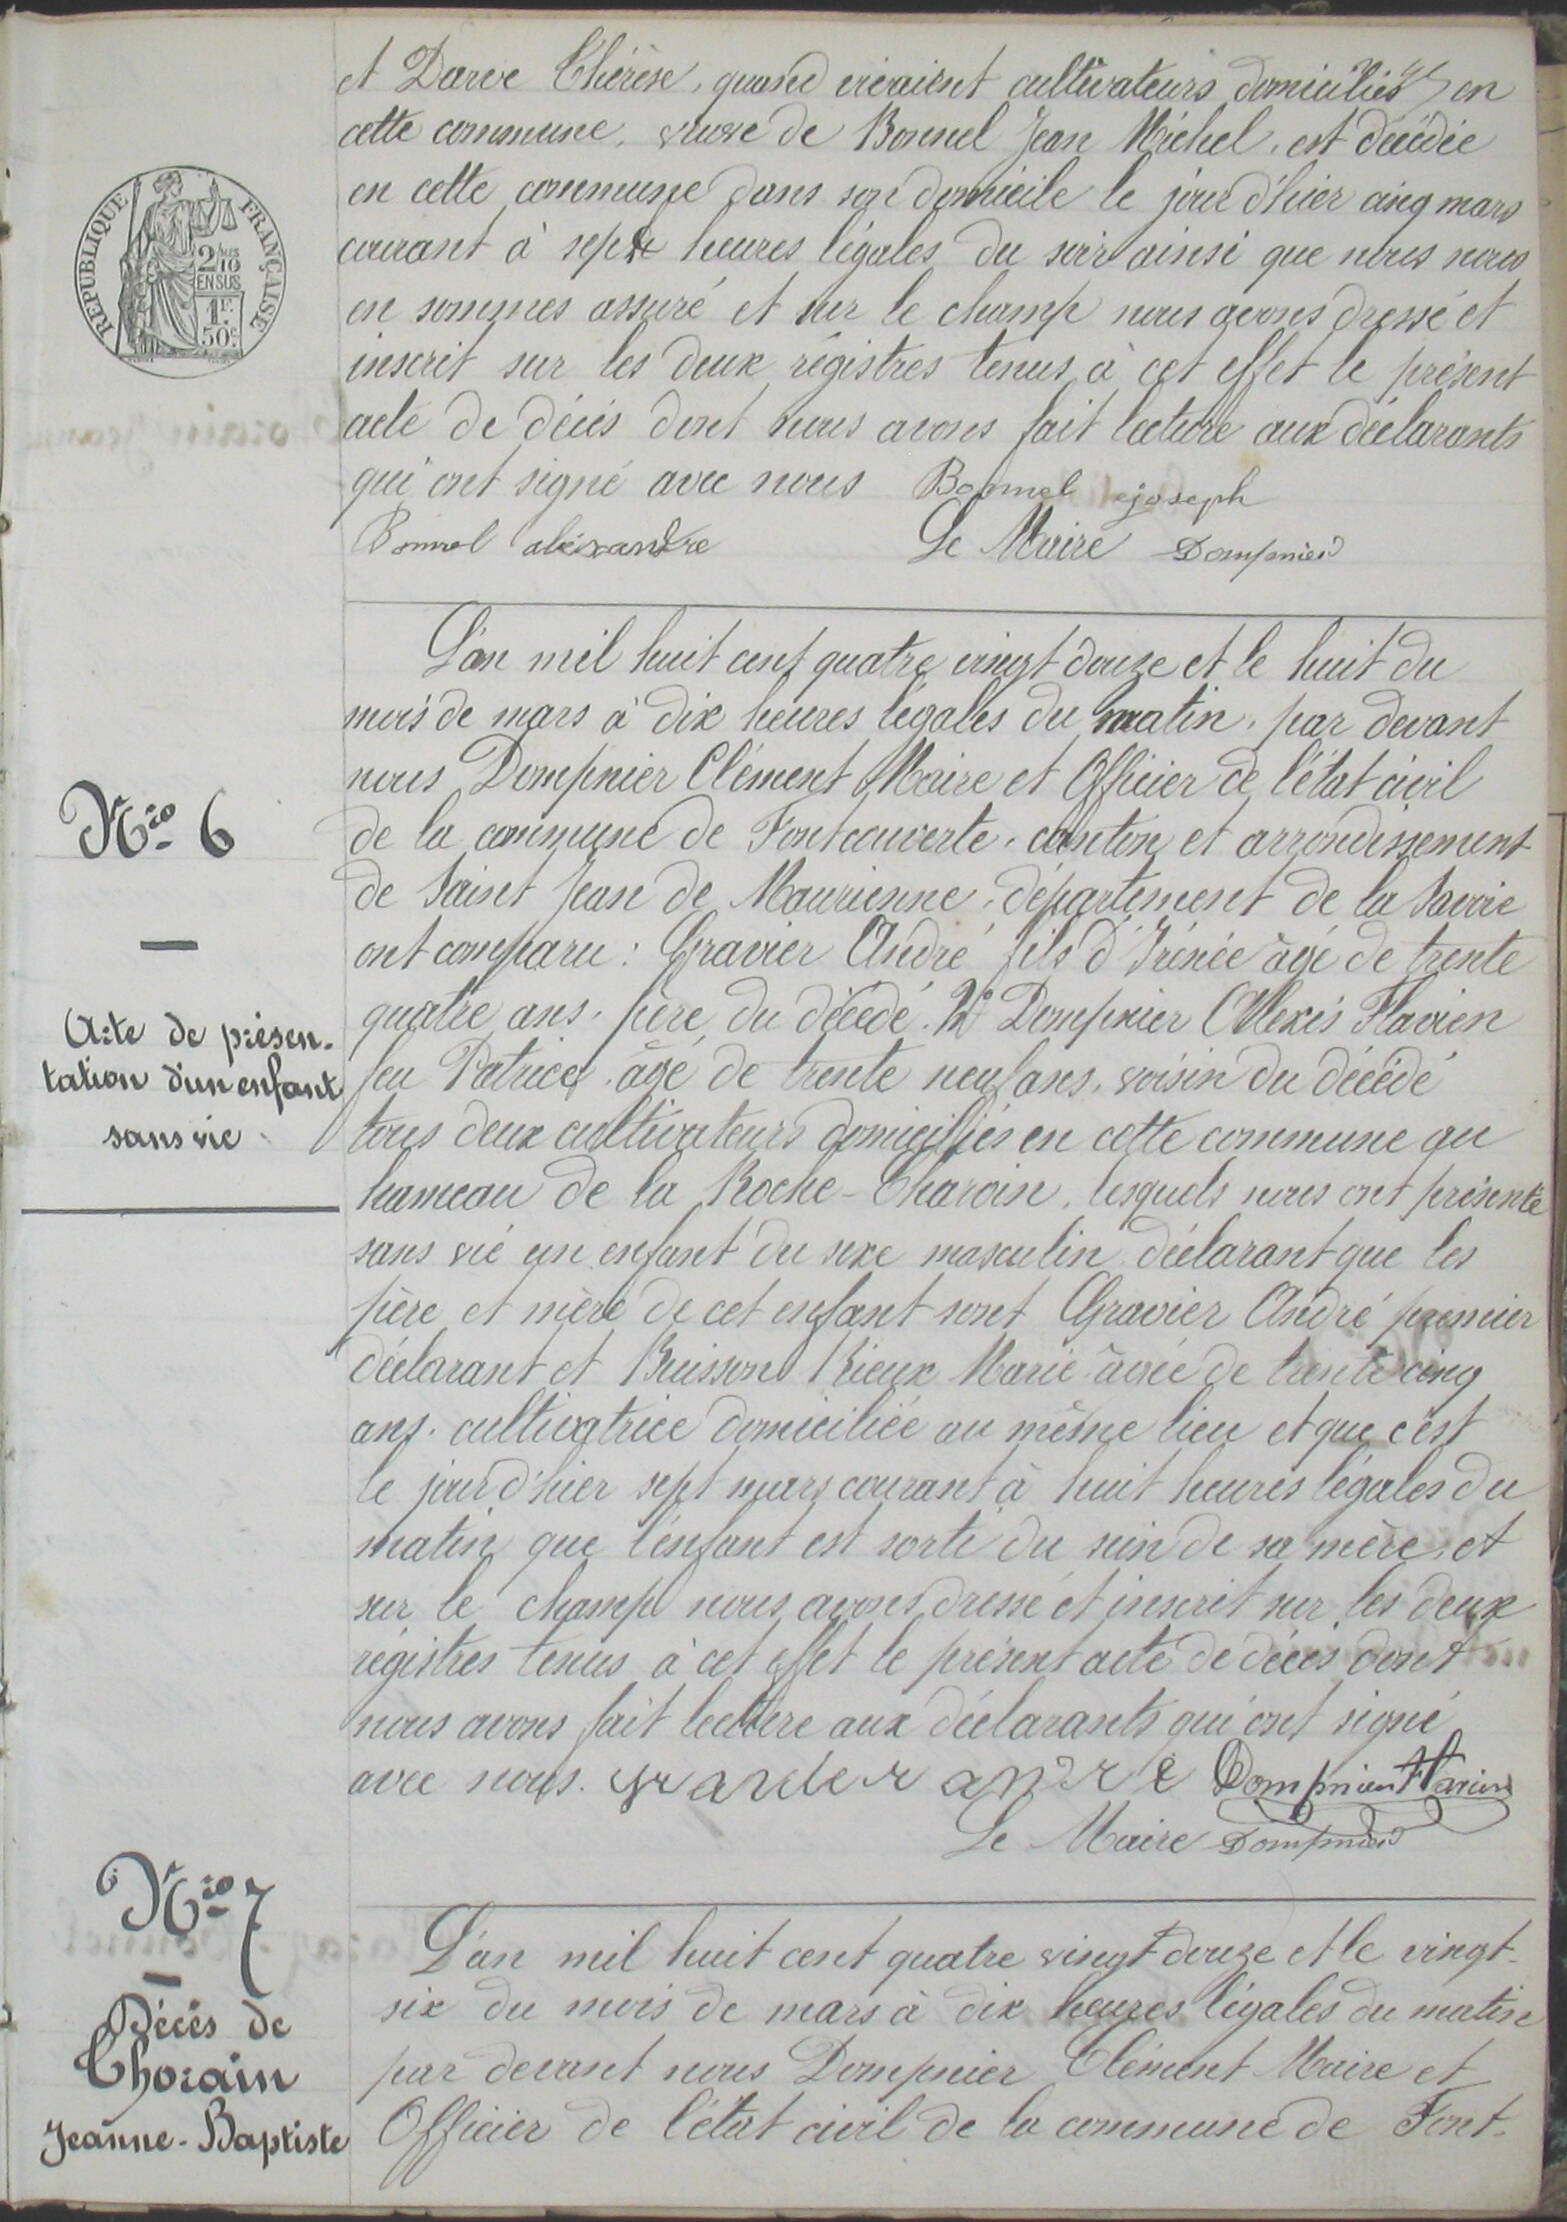 et Darve Thérèse, quand vivaient cultivateurs domiciliés en
cette commune, veuve de Bonnel Jean Michel, est décédée
en cette commune dans son domicile le jour d'hier cinq mars
courant à sept heures légales du soir ainsi que nous nous
en sommes assuré et sur le champ nous avons dressé et
inscrit sur les deux régistres tenus à cet effet le présent
acte de décès dont nous avons fait lecture aux déclarants
qui ont signé avec nous Bonnel joseph
Bonnel aléxandre Le Maire Dompnier
REPUBLIQUE FRANÇAISE
2/10
EN SUS
1F.
50c.
Nro 6
Acte de présen-
tation d'un enfant
sans vie
L'an mil huit cent quatre vingt douze et le huit du
mois de mars à dix heures légales du matin, par devant
nous Dompnier Clément Maire et Officier de l'état civil
de la commune de Fontcouverte, canton et arrondissement
de Saint Jean de Maurienne, département de la Savoie
ont comparu : Gravier André fils d'Irénée âgé de trente
quatre ans, père du décédé. 2° Dompnier Alexis Flavien
feu Patrice, âgé de trente neuf ans, voisin du décédé
tous deux cultivateurs domiciliés en cette commune au
hameau de la Roche-Charvin, lesquels nous ont présenté
sans vie un enfant du sexe masculin déclarant que les
père et mère de cet enfant sont Gravier André premier
déclarant et Buisson Rieux Marie âgée de trente cinq
ans, cultivatrice domiciliée au même lieu et que c'est
le jour d'hier sept mars courant à huit heures légales du
matin que l'enfant est sorti du sein de sa mère, et
sur le champ nous avons dressé et inscrit sur les deux
régistres tenus à cet effet le présent acte de décès dont
nous avons fait lecture aux déclarants qui ont signé
avec nous. andré Dompnier Flavien
Le Maire Dompnier
Nro 7
Décès de
Thorain
Jeanne-Baptiste
L'an mil huit cent quatre vingt douze et le vingt-
six du mois de mars à dix heures légales du matin
par devant nous Dompnier Clément Maire et
Officier de l'état civil de la commune de Font-